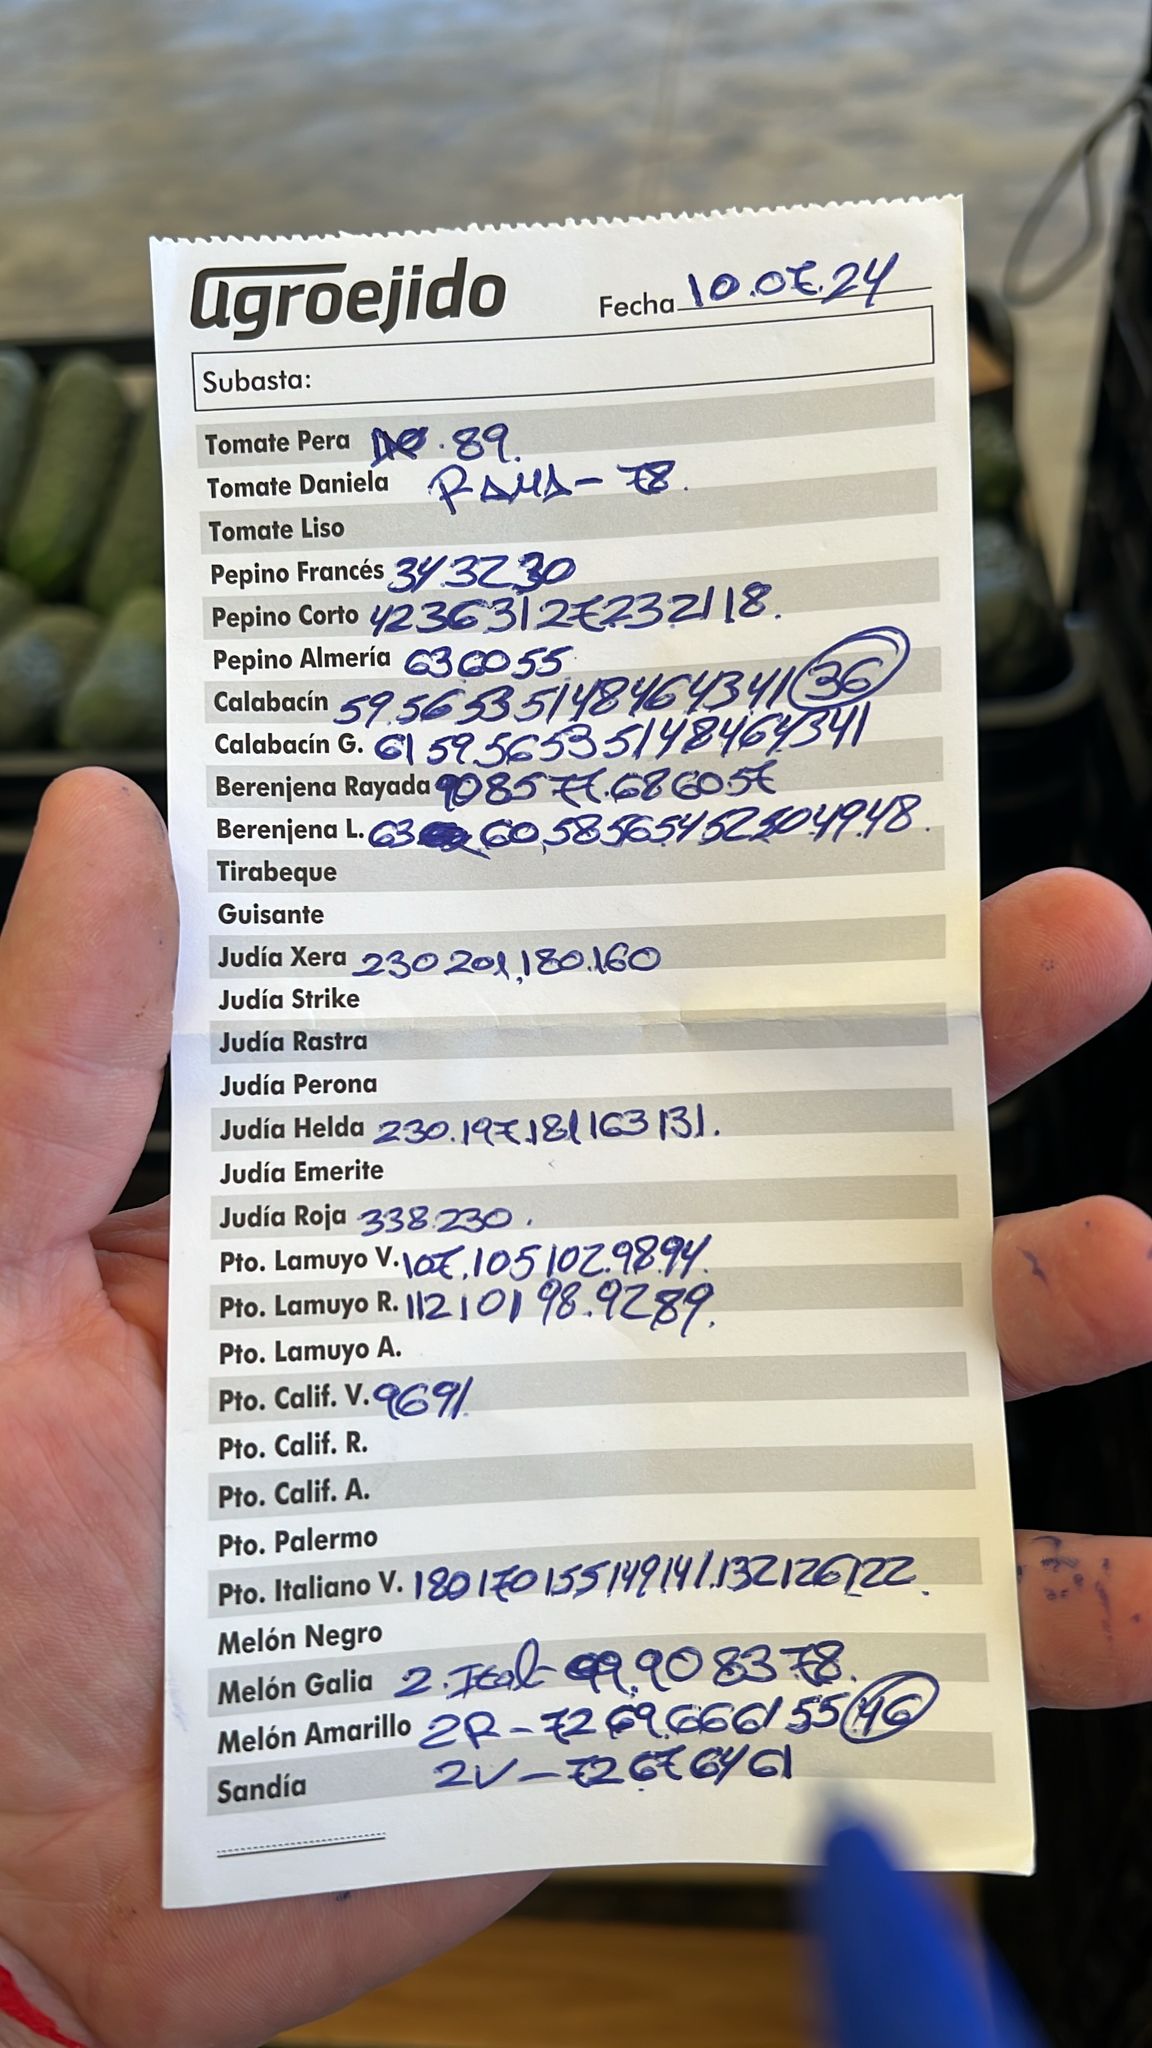 agroejido
Fecha 10.07.24
Subasta:
Tomate Pera 89.
Tomate Daniela RAMA - 78.
Tomate Liso
Pepino Francés 34.32.30
Pepino Corto 42363127.232118.
Pepino Almería 636055.
Calabacín 59.5653514846434136
Calabacín G. 615956535148464341
Berenjena Rayada 908577.686057
Berenjena L. 63 60,58565452504948.
Tirabeque
Guisante
Judía Xera 230 201,180.160
Judía Strike
Judía Rastra
Judía Perona
Judía Helda 230.197.181163131.
Judía Emerite
Judía Roja 338.230.
Pto. Lamuyo V. 107.105102.9894.
Pto. Lamuyo R. 11210198.9289.
Pto. Lamuyo A.
Pto. Calif. V. 9691.
Pto. Calif. R.
Pto. Calif. A.
Pto. Palermo
Pto. Italiano V. 180170155149141.132126122.
Melón Negro
Melón Galia 2.Ital- 99.908378.
Melón Amarillo 2R - 7269.66615546
Sandía 2V - 72676461